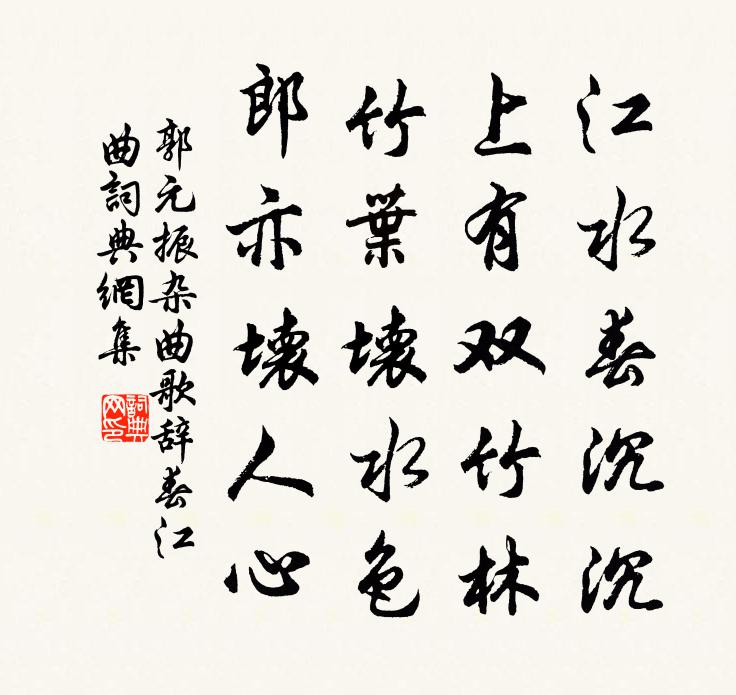 江水春沉沉
上有双竹林
竹葉壊水色
郎亦壊人心
郭元振杂曲歌辞春江
曲詞典網集
詞典网印